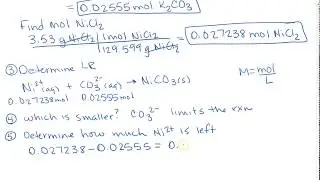 = 0.02555 mol K₂CO₃
Find mol NiCl₂
3.53 g NiCl₂ | 1 mol NiCl₂ = 0.027238 mol NiCl₂
129.599 g NiCl₂
③ Determine LR
Ni²⁺(aq) + CO₃²⁻(aq) → NiCO₃(s)
M = mol
L
0.027238mol 0.02555mol
④ which is smaller? CO₃²⁻ limits the rxn
⑤ Determine how much Ni²⁺ is left
0.027238 - 0.02555 = 0.